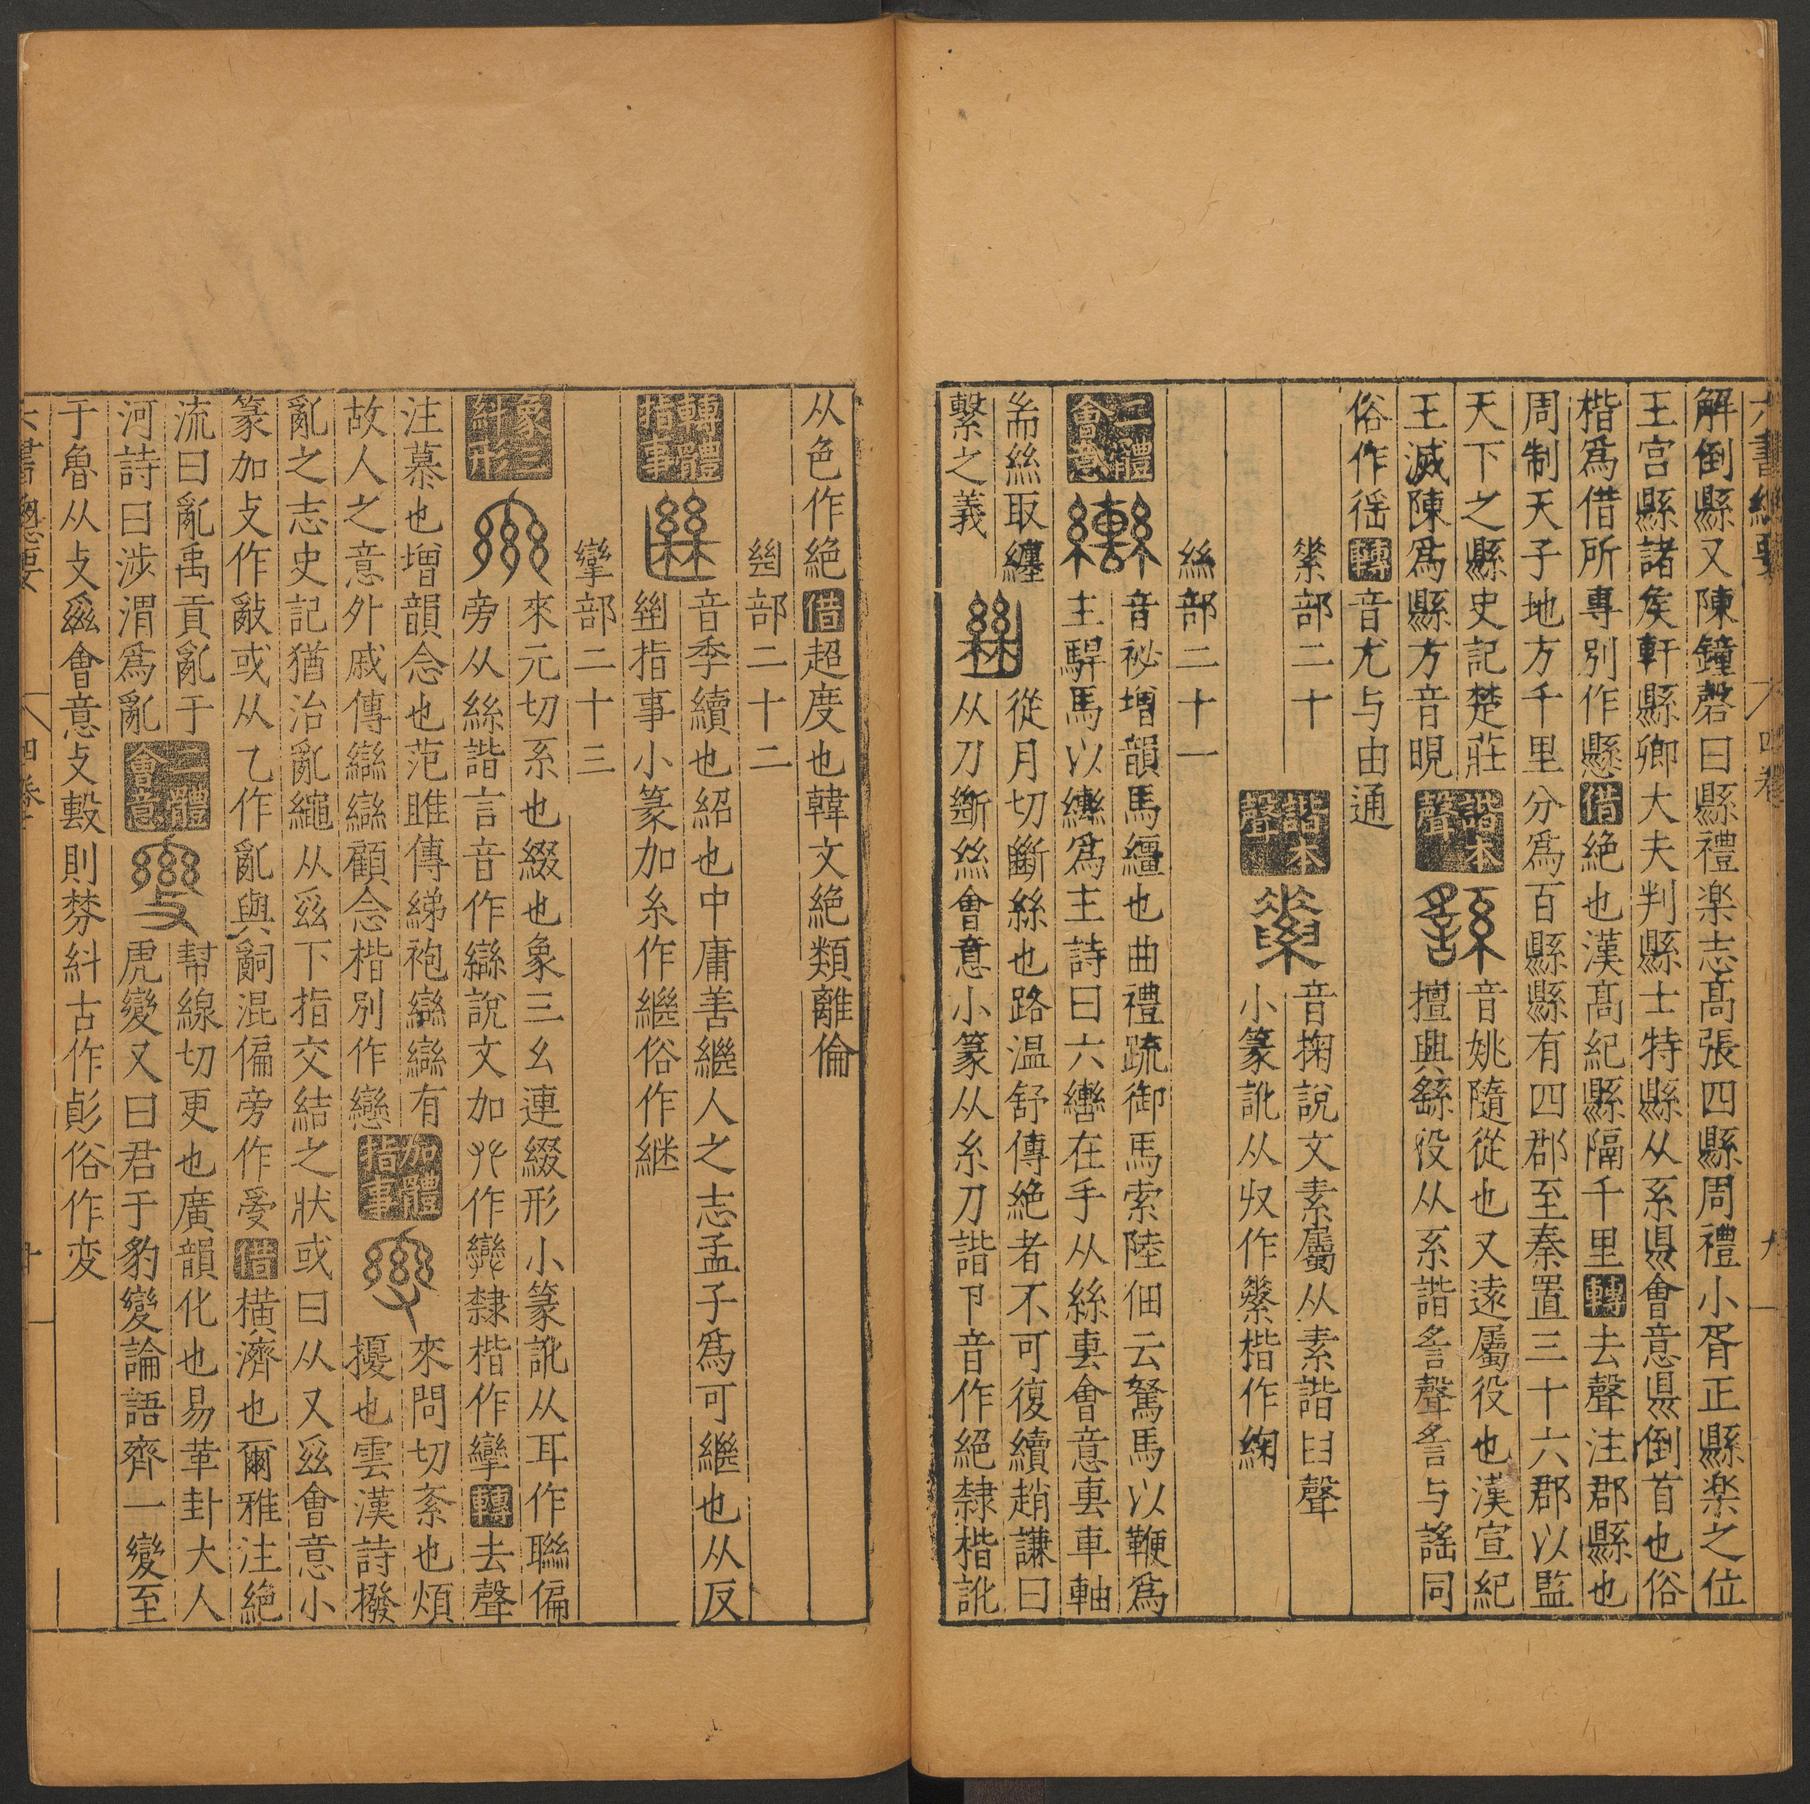 六書緫要 四卷 九
解倒縣又陳鐘磬曰縣禮楽志髙張四縣周禮小胥正縣楽之位
王宫縣諸矦軒縣卿大夫判縣士特縣从系㬎會意㬎倒首也俗
楷爲借所專别作懸借絶也漢髙紀縣隔千里轉去聲注郡縣也
周制天子地方千里分爲百縣縣有四郡至秦置三十六郡以監
天下之縣史記楚莊
王滅陳爲縣方音晛
諧本聲
音姚隨從也又逺屬役也漢宣紀
擅興繇役从系諧䚻聲䚻与謠同
俗作徭轉音尤与由通
䋣部二十
諧本聲
音掬說文素屬从素諧𦥑聲
小篆訛从収作䋣楷作䋤
絲部二十一
二體會意
音袐增韻馬韁也曲禮疏御馬索陸佃云駑馬以鞭爲
主駻馬以轡爲主詩曰六轡在手从絲軎會意軎車軸
耑絲取纏
繋之義
從月切斷絲也路温舒傳絶者不可復續趙謙曰
从刀斷絲會意小篆从糸刀諧卩音作絕隸楷訛
从色作絶借超度也韓文絶類離倫
𢇍部二十二
轉體指事
音季續也紹也中庸善繼人之志孟子爲可繼也从反
𢇍指事小篆加糸作繼俗作継
孿部二十三
象三糾形
來元切系也綴也象三幺連綴形小篆訛从耳作聯偏
旁从絲諧言音作䜌說文加𠬜作攣隸楷作攣轉去聲
注慕也增韻念也范睢傳綈袍䜌䜌有
故人之意外戚傳䜌䜌顧念楷别作戀
加體指事
來問切紊也煩
擾也雲漢詩撥
亂之志史記猶治亂繩从𢆶下指交結之狀或曰从又𢆶會意小
篆加攴作敽或从乙作亂與嗣混偏旁作𤔔借横濟也爾雅注絶
流曰亂禹貢亂于
河詩曰涉渭爲亂
二體會意
幇線切更也廣韻化也易革卦大人
虎變又曰君子豹變論語齊一變至
于魯从攴𢆶會意攴毄則棼糾古作彪俗作変
六書緫要 四卷 十